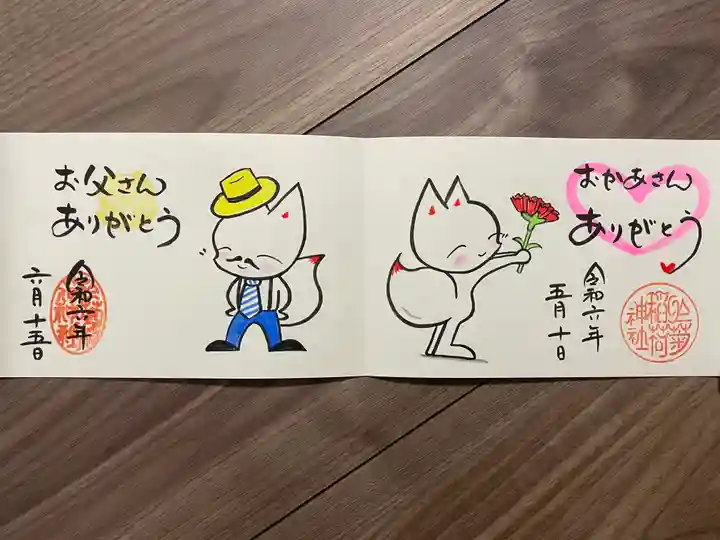 おかあさん
ありがとう
令和六年
五月十日
山菊
稲荷
神社
お父さん
ありがとう
令和六年
六月十五日